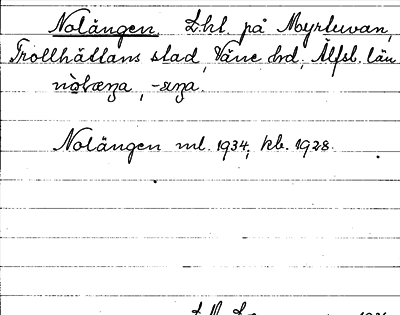 Nolängen Lht. på Myrtuvan,
Trollhättans stad, Väne hd, Älfsb. län
Nolängen ml. 1934, kb. 1928.